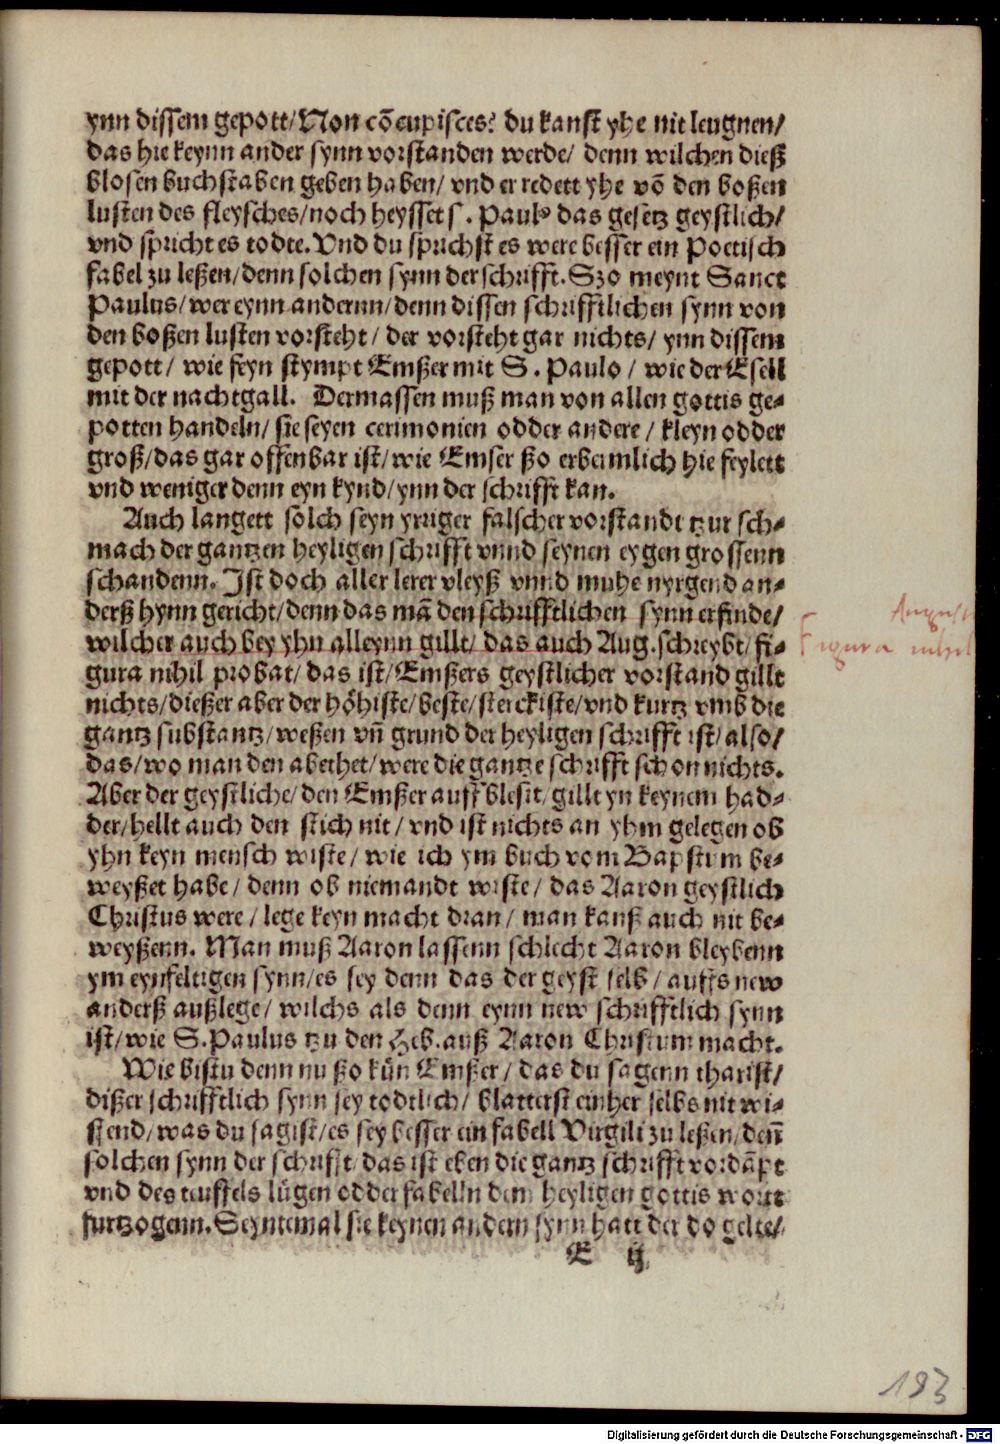 ynn dissem gepott/Non cōcupisces? du kanst yhe nit leugnen/
das hie keynn ander synn vorstanden werde/ denn wilchen dieß
blosen buchstaben geben haben/ vnd er redett yhe vō den boßen
lusten des fleysches/noch heysset s. Paulꝰ das gesetz geystlich/
vnd spricht es todte. Vnd du sprichst es were besser ein Poetisch
fabel zu leßen/denn solchen synn der schrifft. Szo meynt Sanct
Paulus/wer eynn andernn/denn dissen schrifftlichen synn von
den boßen lusten vorsteht/ der vorsteht gar nichts/ ynn dissem
gepott/ wie feyn stympt Emßer mit S. Paulo/ wie der Esell
mit der nachtgall. Dermassen muß man von allen gottis ge-
potten handeln/ sie seyen cerimonien odder andere/ kleyn odder
groß/das gar offenbar ist/wie Emser ßo erbermlich hie feylett
vnd weniger denn eyn kynd/ynn der schrifft kan.
Auch langett solch seyn yrriger falscher vorstandt tzur sch-
mach der gantzen heyligen schrifft vnnd seynen eygen grossenn
schandenn. Ist doch aller lerer vleyß vnnd muhe nyrgend an-
derß hynn gericht/denn das mā den schrifftlichen synn erfinde/
wilcher auch bey yhn alleynn gillt/ das auch Aug. schreybt/ fi-
gura nihil probat/ das ist/ Emßers geystlicher vorstand gillt
nichts/dießer aber der höhiste/beste/sterckiste/vnd kurtz vmb die
gantz substantz/weßen vn̄ grund der heyligen schrifft ist/also/
das/wo man den abethet/were die gantze schrifft schon nichts.
Aber der geystliche/den Emßer auffblesit/gillt yn keynem had-
der/hellt auch den stich nit/ vnd ist nichts an yhm gelegen ob
yhn keyn mensch wiste/ wie ich ym buch vom Bapstum be-
weyßet habe/ denn ob niemandt wiste/ das Aaron geystlich
Christus were/ lege keyn macht dran/ man kanß auch nit be-
weyßenn. Man muß Aaron lassenn schlecht Aaron bleybenn
ym eynfeltigen synn/es sey denn das der geyst selb/ auffs new
anderß außlege/ wilchs als denn eynn new schrifftlich synn
ist/wie S. Paulus tzu den Heb. auß Aaron Christum macht.
Wie bistu denn nu ßo kün Emßer/ das du sagenn tharist/
dißer schrifftlich synn sey todtlich/ blatterst einher selbs nit wi-
ssend/was du sagist/es sey besser ein fabell Virgili zu leßen/den̄
solchen synn der schrifft/das ist eben die gantz schrifft vordāpt
vnd des teuffels lügen odder fabelln dem heyligen gottis wort
furtzogenn. Seyntemal sie keynen andern synn hatt der do gelte/
E ij
Figura nihil
193
Digitalisierung gefördert durch die Deutsche Forschungsgemeinschaft - DFG